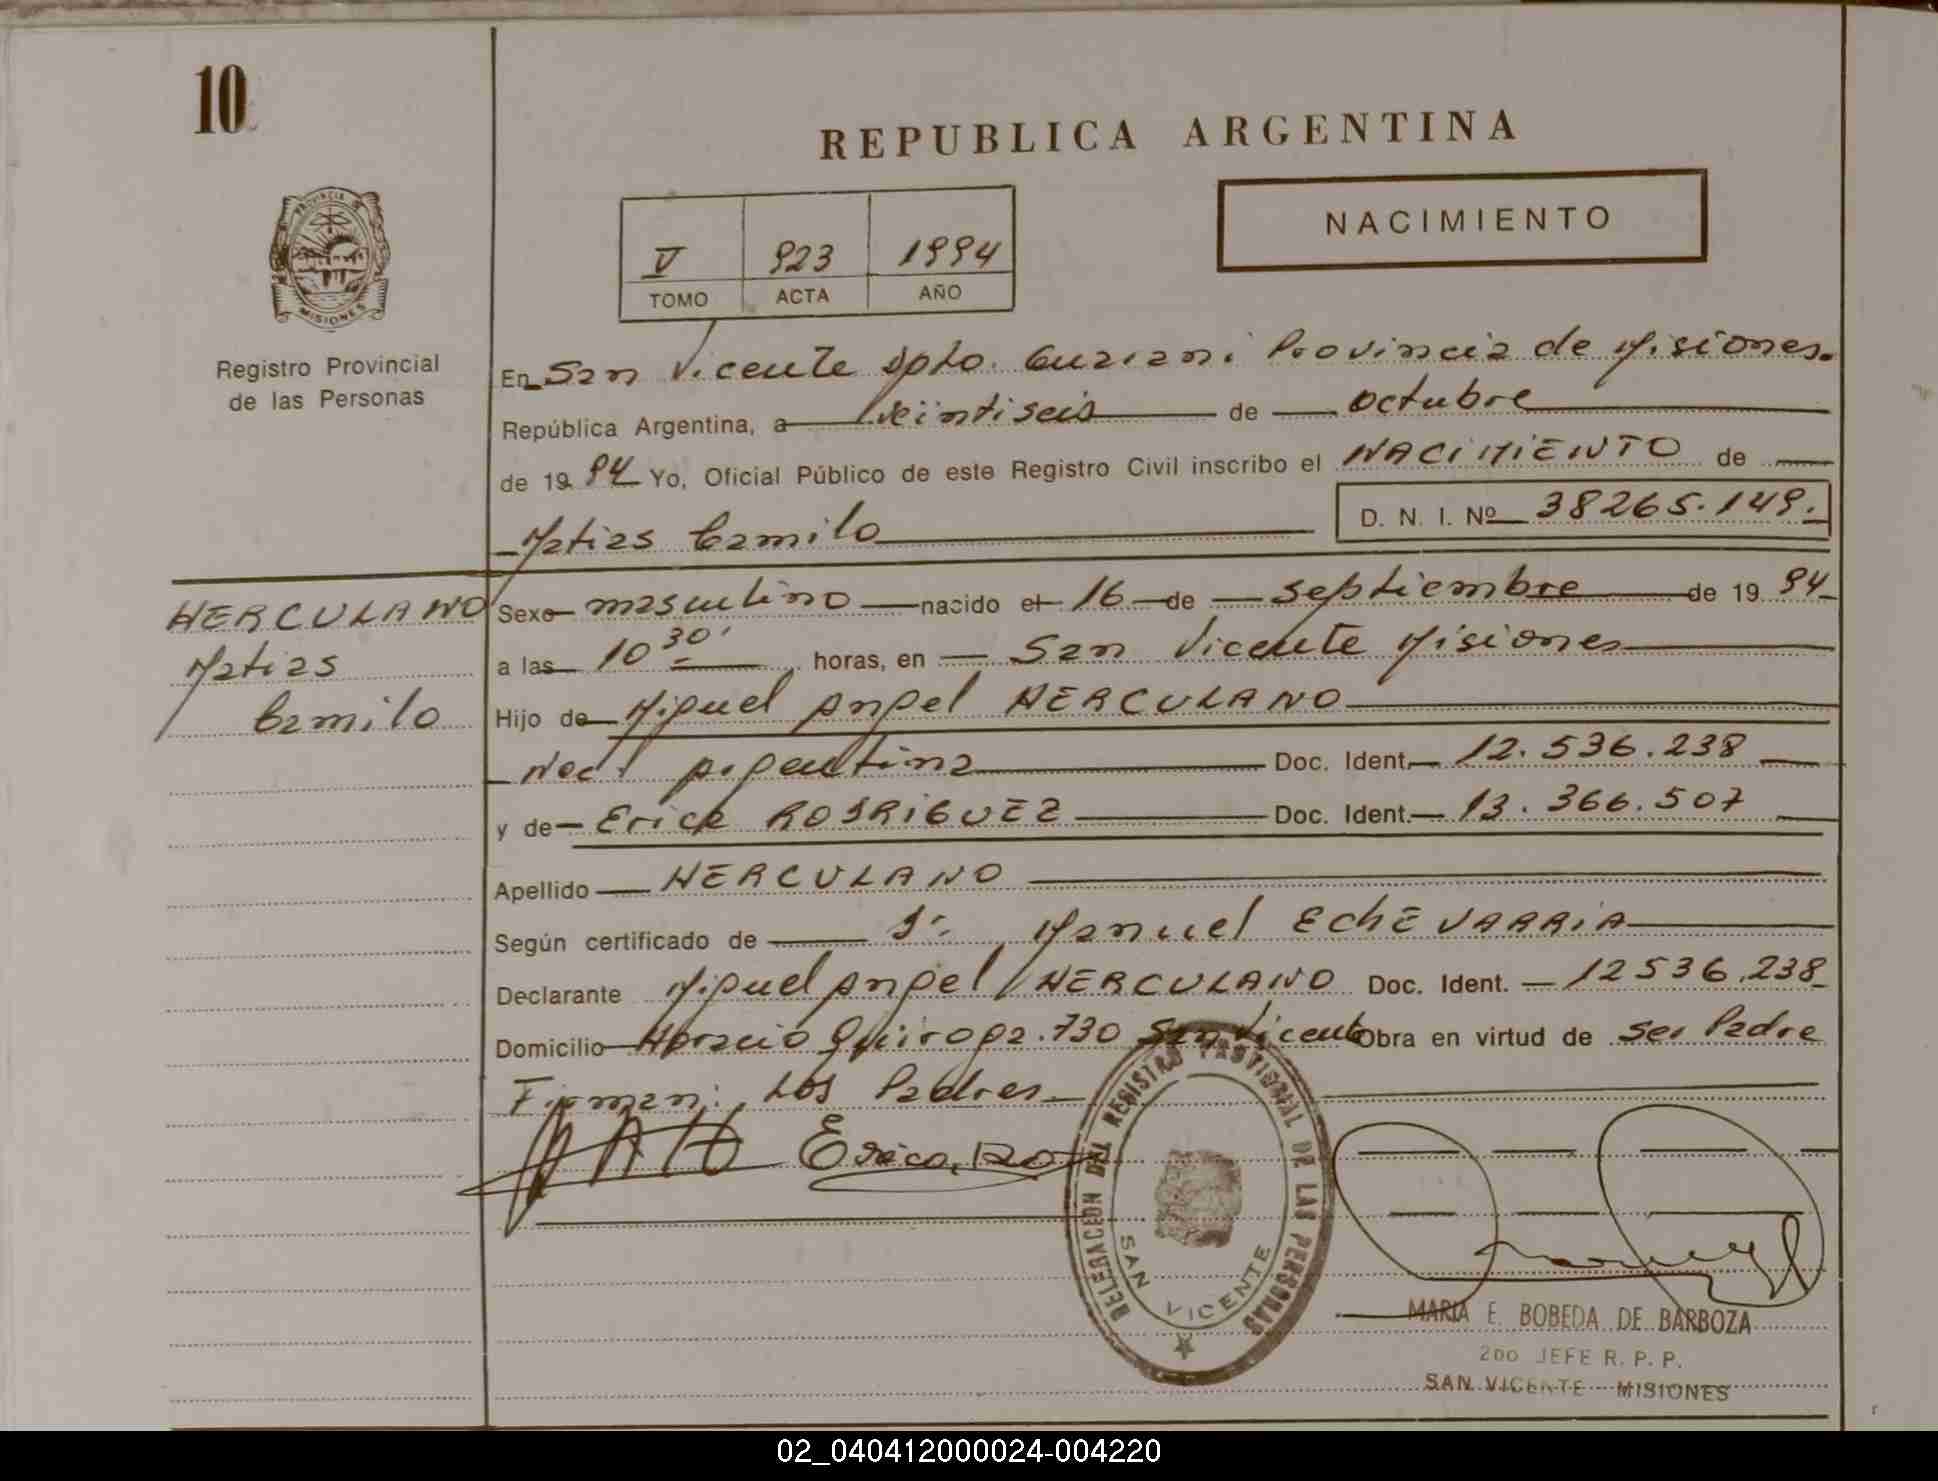 10
REPUBLICA ARGENTINA
PROVINCIA DE
MISIONES
Registro Provincial
de las Personas
V 923 1994
TOMO ACTA AÑO
NACIMIENTO
En San Vicente Dpto. Guarani Provincia de Misiones.
República Argentina, a veintiseis de octubre
de 1994 Yo, Oficial Público de este Registro Civil inscribo el NACIMIENTO de
Matias Camilo D. N. I. Nº 38265.149.
HERCULANO
Matias
Camilo
Sexo masculino nacido el 16 de septiembre de 1994
a las 10 30' horas, en San Vicente Misiones
Hijo de Miguel Angel HERCULANO
Nac. Argentina Doc. Ident. 12.536.238
y de Erica RODRIGUEZ Doc. Ident. 13.366.507
Apellido HERCULANO
Según certificado de Dr. Manuel ECHEVARRIA
Declarante Miguel Angel HERCULANO Doc. Ident. 12536.238
Domicilio Horacio Quiroga 730 San Vicente Obra en virtud de ser Padre
Firman: Los Padres
Erica, Ro
DELEGACION DEL REGISTRO PROVINCIAL DE LAS PERSONAS
SAN VICENTE
MARIA E. BOBEDA DE BARBOZA
2DO JEFE R. P. P.
SAN VICENTE MISIONES
02_040412000024-004220